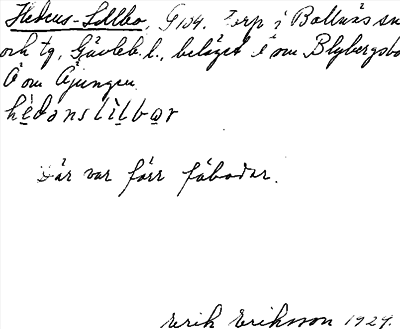 Hedens-Lillbo, G 104. Torp i Bollnäs sn
och tg, Gävleb. l., beläget Ö om Blybergsbo
Ö om Åjungen.
hèdənslìlbər
Där var förr fäbodar.
Erik Eriksson 1924.